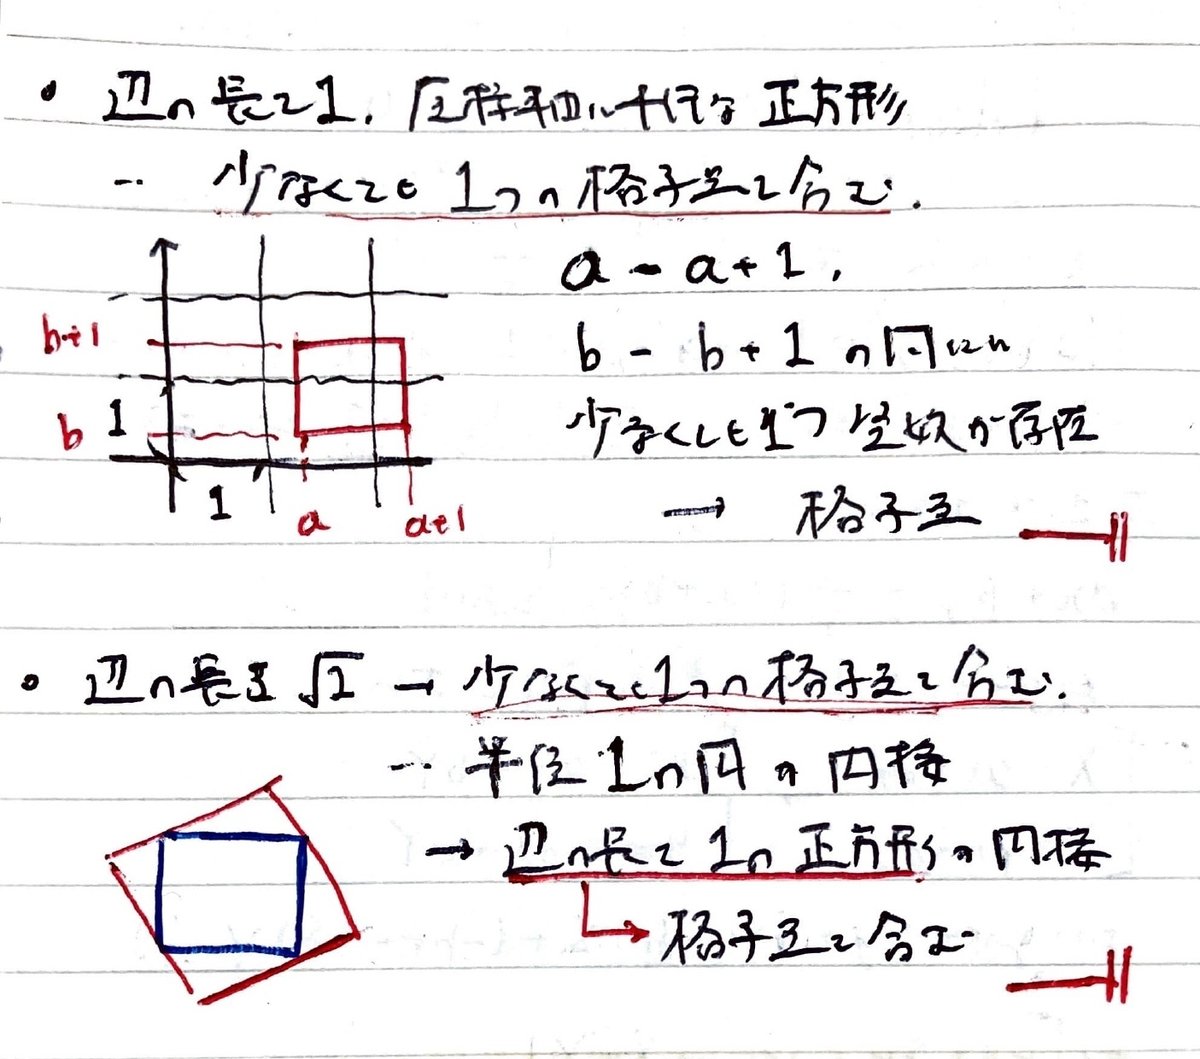 ・ 辺の長さ1, 座標軸に平行な 正方形
… 少なくとも 1つの格子点を含む.
a ~ a+1,
b+1
b ~ b+1 の间には
b 1
少なくとも1つ 整数が存在
→ 格子点
1 a a+1
・ 辺の長さ √2 → 少なくとも1つの格子点を含む.
… 半径 1の円の 内接
→ 辺の長さ 1の 正方形の 内接
格子点を含む